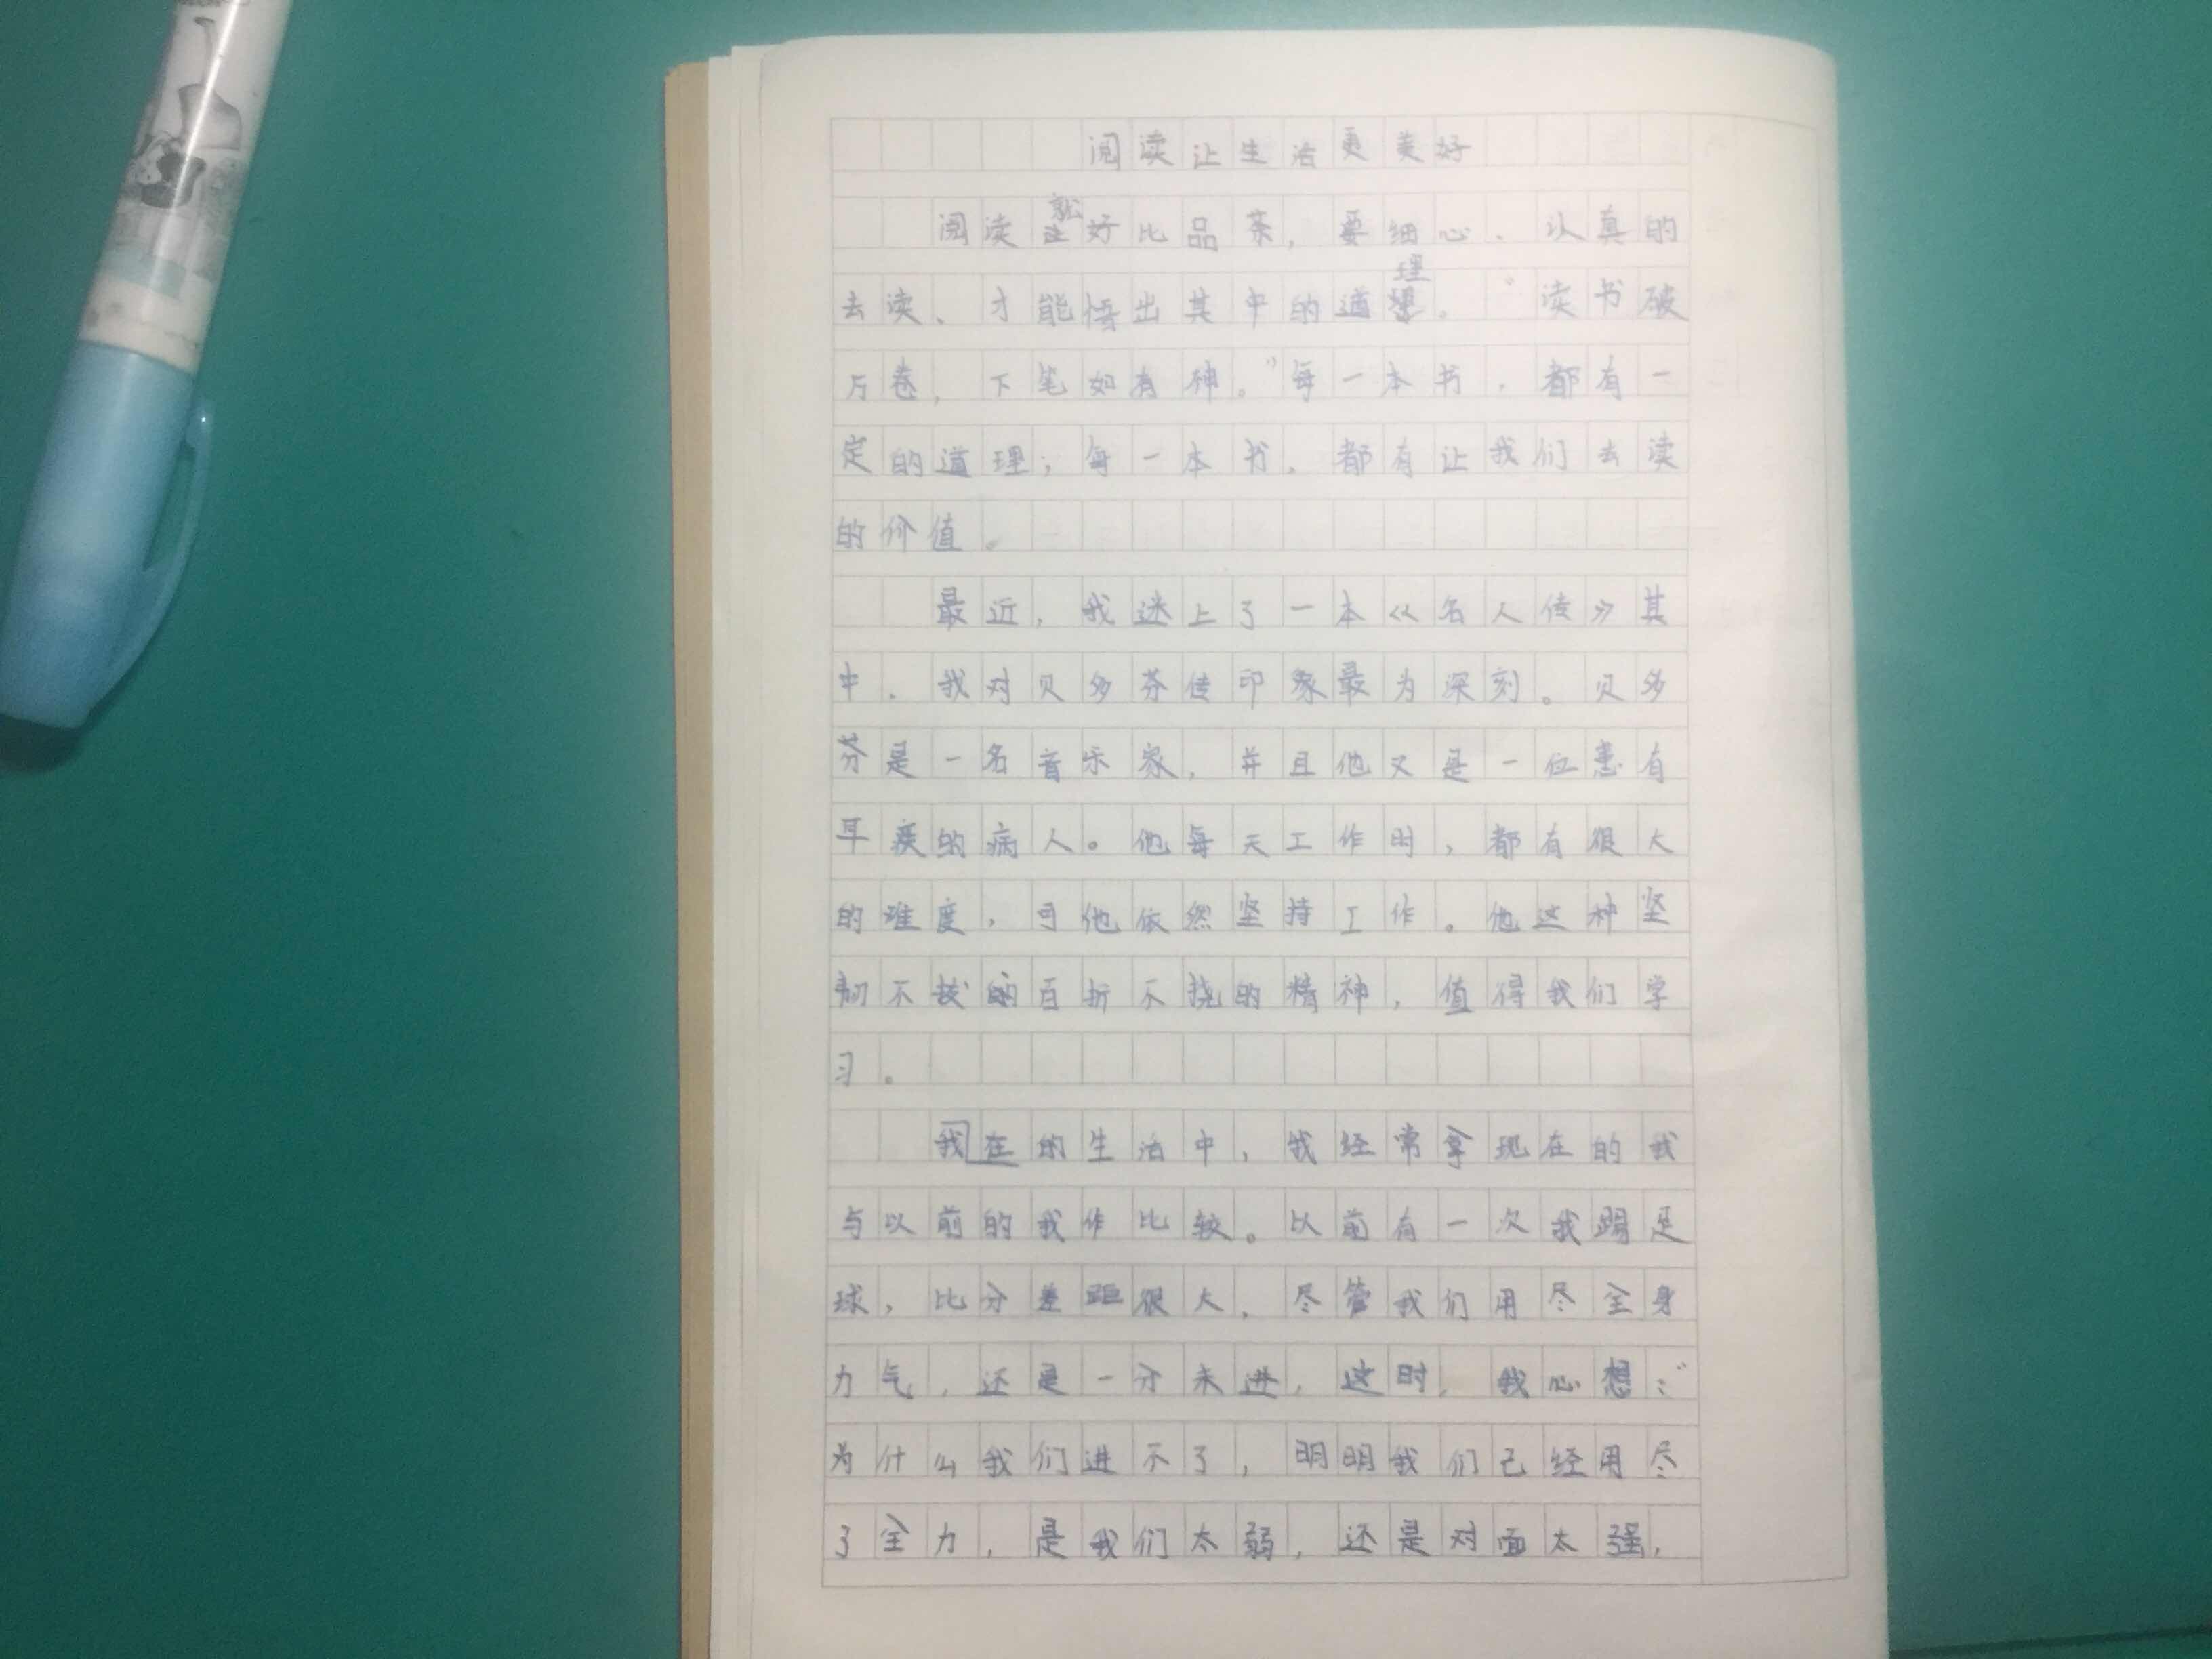 阅读让生活更美好
阅读就好比品茶，要细心、认真的
去读、才能悟出其中的道理。“读书破
万卷，下笔如有神。”每一本书，都有一
定的道理；每一本书，都有让我们去读
的价值。
最近，我迷上了一本《名人传》其
中，我对贝多芬传印象最为深刻。贝多
芬是一名音乐家，并且他又是一位患有
耳疾的病人。他每天工作时，都有很大
的难度，可他依然坚持工作。他这种坚
韧不拔的百折不挠的精神，值得我们学
习。
我在的生活中，我经常拿现在的我
与以前的我作比较。以前有一次我踢足
球，比分差距很大，尽管我们用尽全身
力气，还是一分未进，这时，我心想：“
为什么我们进不了，明明我们已经用尽
了全力，是我们太弱，还是对面太强，